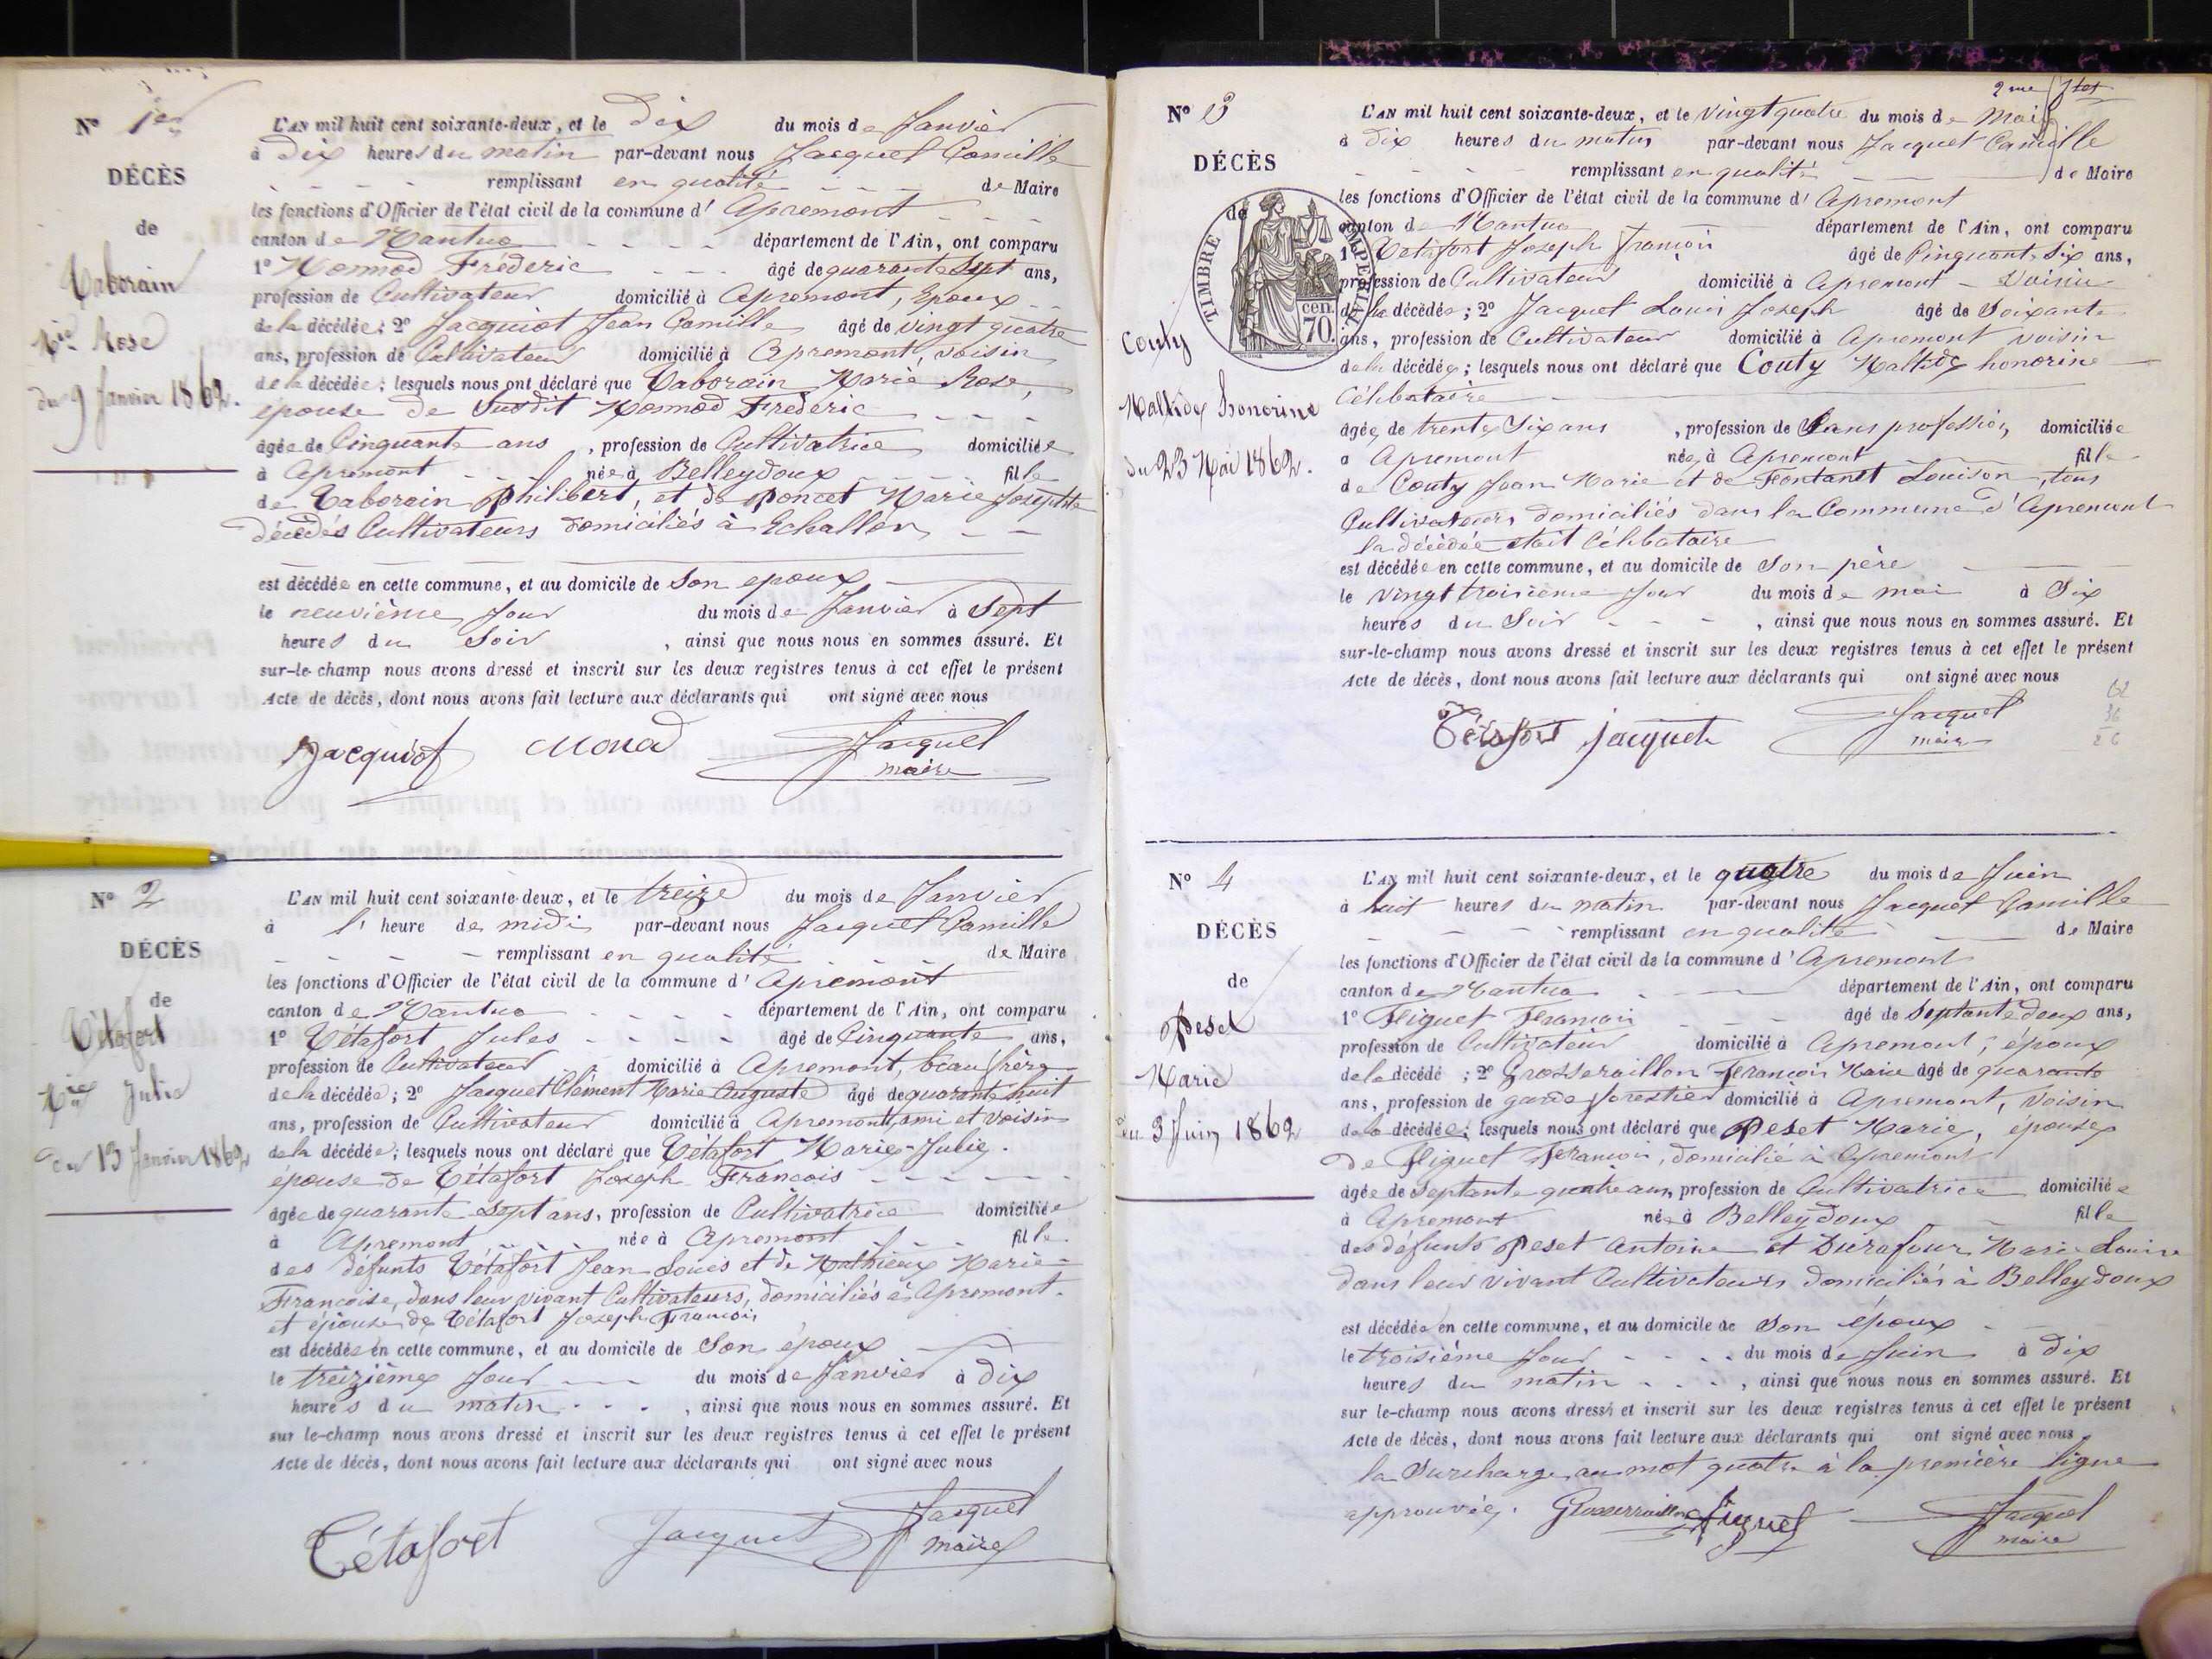 N° 1er
DÉCÈS
de
Taborain
Mie Rose
du 9 Janvier 1862.
L'AN mil huit cent soixante-deux, et le dix du mois de Janvier
à dix heures du matin par-devant nous Jacquet Camille
remplissant en qualité de Maire
les fonctions d'Officier de l'état civil de la commune d'Apremont
canton de Nantua département de l'Ain, ont comparu
1° Monnod Fréderic âgé de quarante sept ans,
profession de Cultivateur domicilié à Apremont, Epoux
de la décédée; 2° Jacquiot Jean Camille âgé de vingt quatre
ans, profession de Cultivateur domicilié à Apremont, voisin
de la décédée; lesquels nous ont déclaré que Taborain Marie Rose,
épouse de Susdit Monnod Fréderic
âgée de Cinquante ans, profession de Cultivatrice domiciliée
à Apremont née à Belleydoux fille
de Taborain Philibert, et de Poncet Marie Josephte
décédés Cultivateurs domiciliés à Echallon
est décédée en cette commune, et au domicile de Son epoux
le neuvième Jour du mois de Janvier à Sept
heures du Soir, ainsi que nous nous en sommes assuré. Et
sur-le-champ nous avons dressé et inscrit sur les deux registres tenus à cet effet le présent
Acte de décès, dont nous avons fait lecture aux déclarants qui ont signé avec nous
Jacquiot Monod Jacquet
maire
N° 2
DÉCÈS
de
Tétafort
Mie Julie
du 13 Janvier 1862
L'AN mil huit cent soixante-deux, et le treize du mois de Janvier
à l' heure de midi par-devant nous Jacquet Camille
remplissant en qualité de Maire
les fonctions d'Officier de l'état civil de la commune d'Apremont
canton de Nantua département de l'Ain, ont comparu
1° Tétafort Jules âgé de Cinquante ans,
profession de Cultivateur domicilié à Apremont, beau frère
de la décédée; 2° Jacquet Clément Marie Auguste âgé de quarante huit
ans, profession de Cultivateur domicilié à Apremont, ami et voisin
de la décédée; lesquels nous ont déclaré que Tétafort Marie-Julie.
épouse de Tétafort Joseph François
âgée de quarante sept ans, profession de Cultivatrice domiciliée
à Apremont née à Apremont fille.
des défunts Tétafort Jean Louis et de Mathieux Marie-
Françoise, dans leur vivant Cultivateurs, domiciliés à Apremont.
et épouse de Tétafort Joseph François
est décédée en cette commune, et au domicile de Son époux
le treizième Jour du mois de Janvier à dix
heures du matin, ainsi que nous nous en sommes assuré. Et
sur le-champ nous avons dressé et inscrit sur les deux registres tenus à cet effet le présent
Acte de décès, dont nous avons fait lecture aux déclarants qui ont signé avec nous
Tétafort Jacquet Jacquet
maire
2me
N° 3
DÉCÈS
de
TIMBRE IMPERIAL
cen.
70.
Couty
Maltide honorine
du 23 Mai 1862.
L'AN mil huit cent soixante-deux, et le vingt quatre du mois de Mai
à dix heures du matin par-devant nous Jacquet Camille
remplissant en qualité de Maire
les fonctions d'Officier de l'état civil de la commune d'Apremont
canton de Nantua département de l'Ain, ont comparu
1° Tétafort Joseph François âgé de Cinquante Six ans,
profession de Cultivateur domicilié à Apremont - Voisin
de la décédée; 2° Jacquet Louis Joseph âgé de Soixante
ans, profession de Cultivateur domicilié à Apremont voisin
de la décédée; lesquels nous ont déclaré que Couty Maltide honorine
Célibataire
âgée de trente Six ans, profession de Sans profession, domiciliée
à Apremont née à Apremont fille
de Couty Jean Marie et de Fontanet Louison, tous
Cultivateurs domiciliés dans la Commune d'Apremont
la décédée etait Célibataire
est décédée en cette commune, et au domicile de Son père
le vingt troisième Jour du mois de mai à Six
heures du Soir, ainsi que nous nous en sommes assuré. Et
sur-le-champ nous avons dressé et inscrit sur les deux registres tenus à cet effet le présent
Acte de décès, dont nous avons fait lecture aux déclarants qui ont signé avec nous
62
36
26
Tétafort Jacquet Jacquet
maire
N° 4
DÉCÈS
de
Peset
Marie
du 3 Juin 1862
L'AN mil huit cent soixante-deux, et le quatre du mois de Juin
à huit heures du matin par-devant nous Jacquet Camille
remplissant en qualité de Maire
les fonctions d'Officier de l'état civil de la commune d'Apremont
canton de Nantua département de l'Ain, ont comparu
1° Figuet François âgé de Septante deux ans,
profession de Cultivateur domicilié à Apremont; époux
de la décédé; 2° Grosseraillon François Marie âgé de quarante
ans, profession de garde forestier domicilié à Apremont, Voisin
de la décédée; lesquels nous ont déclaré que Peset Marie, épouse
de Figuet François, domicilié à Apremont
âgée de Septante quatre ans, profession de Cultivatrice domiciliée
à Apremont née à Belleydoux fille
des défunts Peset Antoine et Durafour Marie Louise
dans leur vivant Cultivateurs domiciliés à Belleydoux
est décédée en cette commune, et au domicile de Son époux
le troisième Jour du mois de Juin à dix
heures du matin, ainsi que nous nous en sommes assuré. Et
sur le-champ nous avons dressé et inscrit sur les deux registres tenus à cet effet le présent
Acte de décès, dont nous avons fait lecture aux déclarants qui ont signé avec nous
la Surcharge au mot quatre à la première ligne
approuvée. Grosserraillon Figuet Jacquet
maire